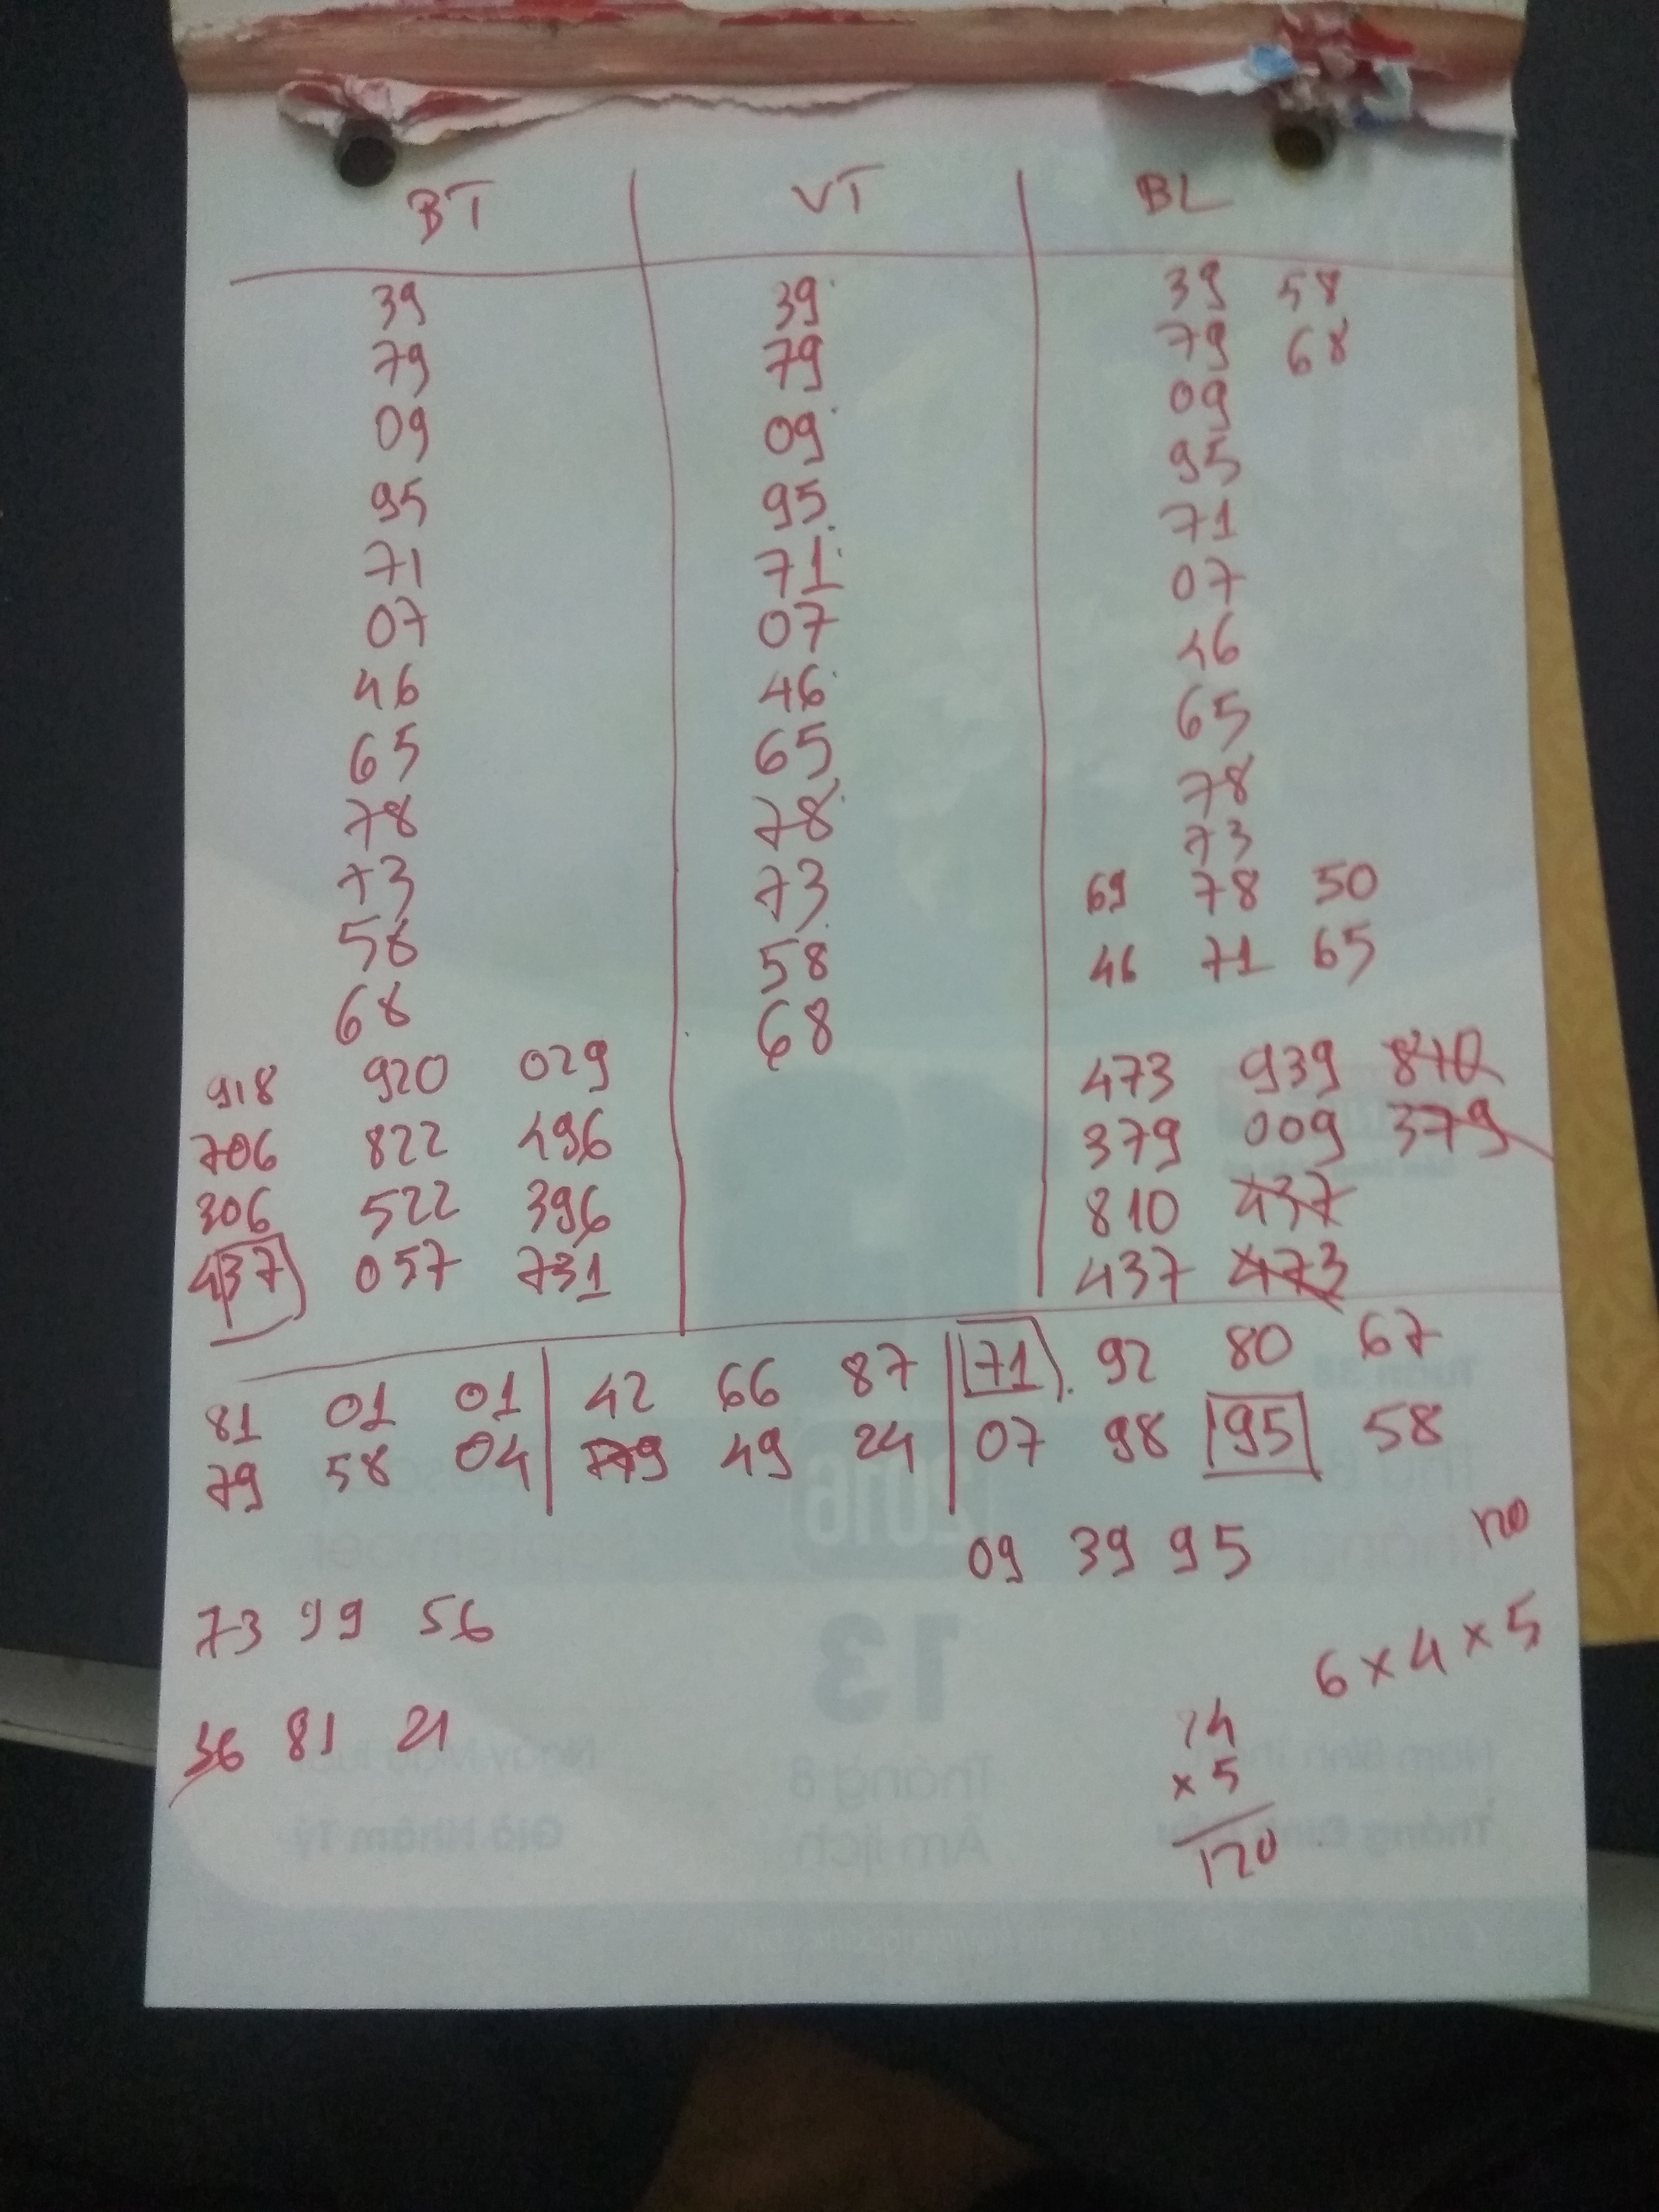 BT VT BL
39 39 39 58
79 79 79 68
09 09 09
95 95 95
71 71 71
07 07 07
46 46 46
65 65 65
78 78 78
73 73 73
58 58 69 78 50
68 68 46 71 65
918 920 029 473 939 810
706 822 496 379 009 379
306 522 396 810 437
437 057 731 437 473
81 01 01 42 66 87 71 92 80 67
79 58 04 779 49 24 07 98 95 58
09 39 95 120
73 99 56 6 x 4 x 5
36 81 21 24
x 5
120
2016
13
Tháng 8
Âm lịch
Giờ Nhâm Tý